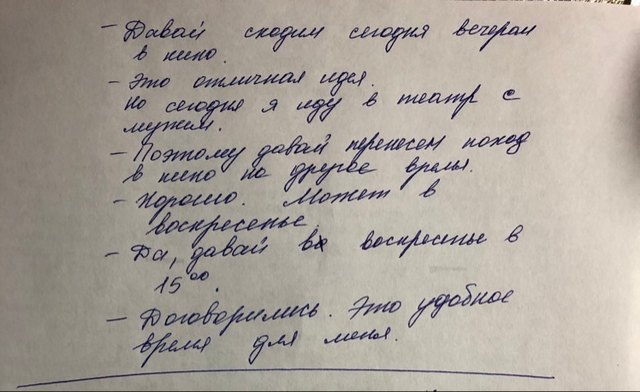 – Давай сходим сегодня вечером
в кино.
– Это отличная идея.
Но сегодня я иду в театр с
мужем.
– Поэтому давай перенесем поход
в кино на другое время.
– Хорошо. Может в
воскресенье.
– Да, давай в воскресенье в
15⁰⁰.
– Договорились. Это удобное
время для меня.